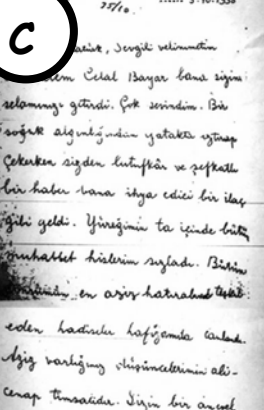 C
25/10.
Atatürk, Sevgili velinimetim
Celal Bayar bana sizin
selamınızı getirdi. Çok sevindim. Bir
soğuk algınlığından yatakta ıztırap
çekerken sizden lutufkâr ve şefkatli
bir haber bana ihya edici bir ilaç
gibi geldi. Yüreğimin ta içinde bütün
muhabbet hislerim sızladı. Bütün
en aziz hatıralarını teşkil
eden hadiseler hafızamda canlandı.
Aziz varlığınız düşüncelerimin ali-
cenap timsalidir. Sizin bir